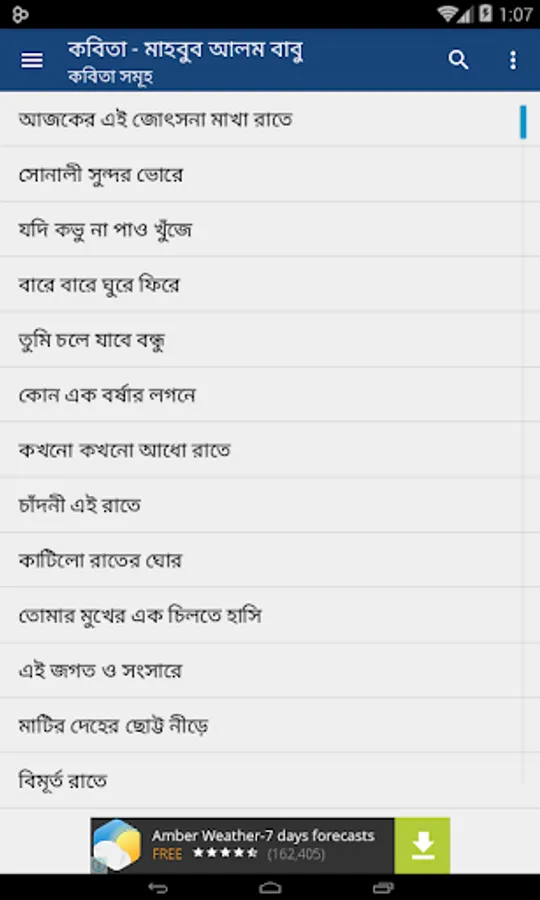 1:07
কবিতা - মাহবুব আলম বাবু
কবিতা সমূহ
আজকের এই জোৎসনা মাখা রাতে
সোনালী সুন্দর ভোরে
যদি কভু না পাও খুঁজে
বারে বারে ঘুরে ফিরে
তুমি চলে যাবে বন্ধু
কোন এক বর্ষার লগনে
কখনো কখনো আধো রাতে
চাঁদনী এই রাতে
কাটিলো রাতের ঘোর
তোমার মুখের এক চিলতে হাসি
এই জগত ও সংসারে
মাটির দেহের ছোট্ট নীড়ে
বিমূর্ত রাতে
Amber Weather-7 days forecasts
FREE (162,405)